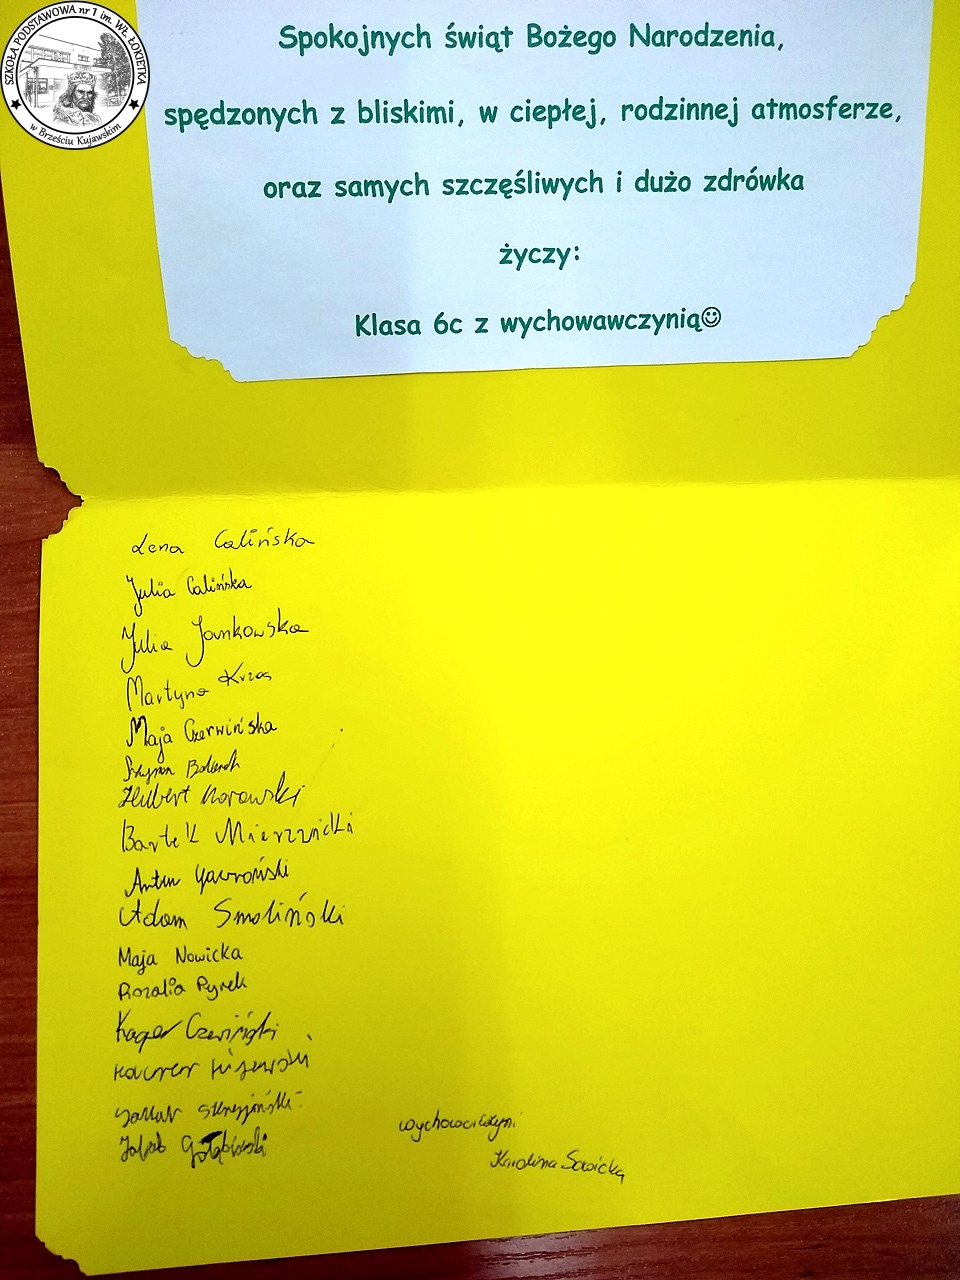 SZKOŁA PODSTAWOWA nr 1 im. WŁ. ŁOKIETKA
w Brześciu Kujawskim
Spokojnych świąt Bożego Narodzenia,
spędzonych z bliskimi, w ciepłej, rodzinnej atmosferze,
oraz samych szczęśliwych i dużo zdrówka
życzy:
Klasa 6c z wychowawczynią☺
Lena Calińska
Julia Calińska
Julia Jankowska
Martyna
Maja Czerwińska
Szymon
Hubert
Bartek
Artur Gawroński
Adam Smoliński
Maja Nowicka
Rozalia Pyrek
Kacper
Kacper
Jakub
Jakub Gołębiewski
wychowawczyni
Karolina Sawicka